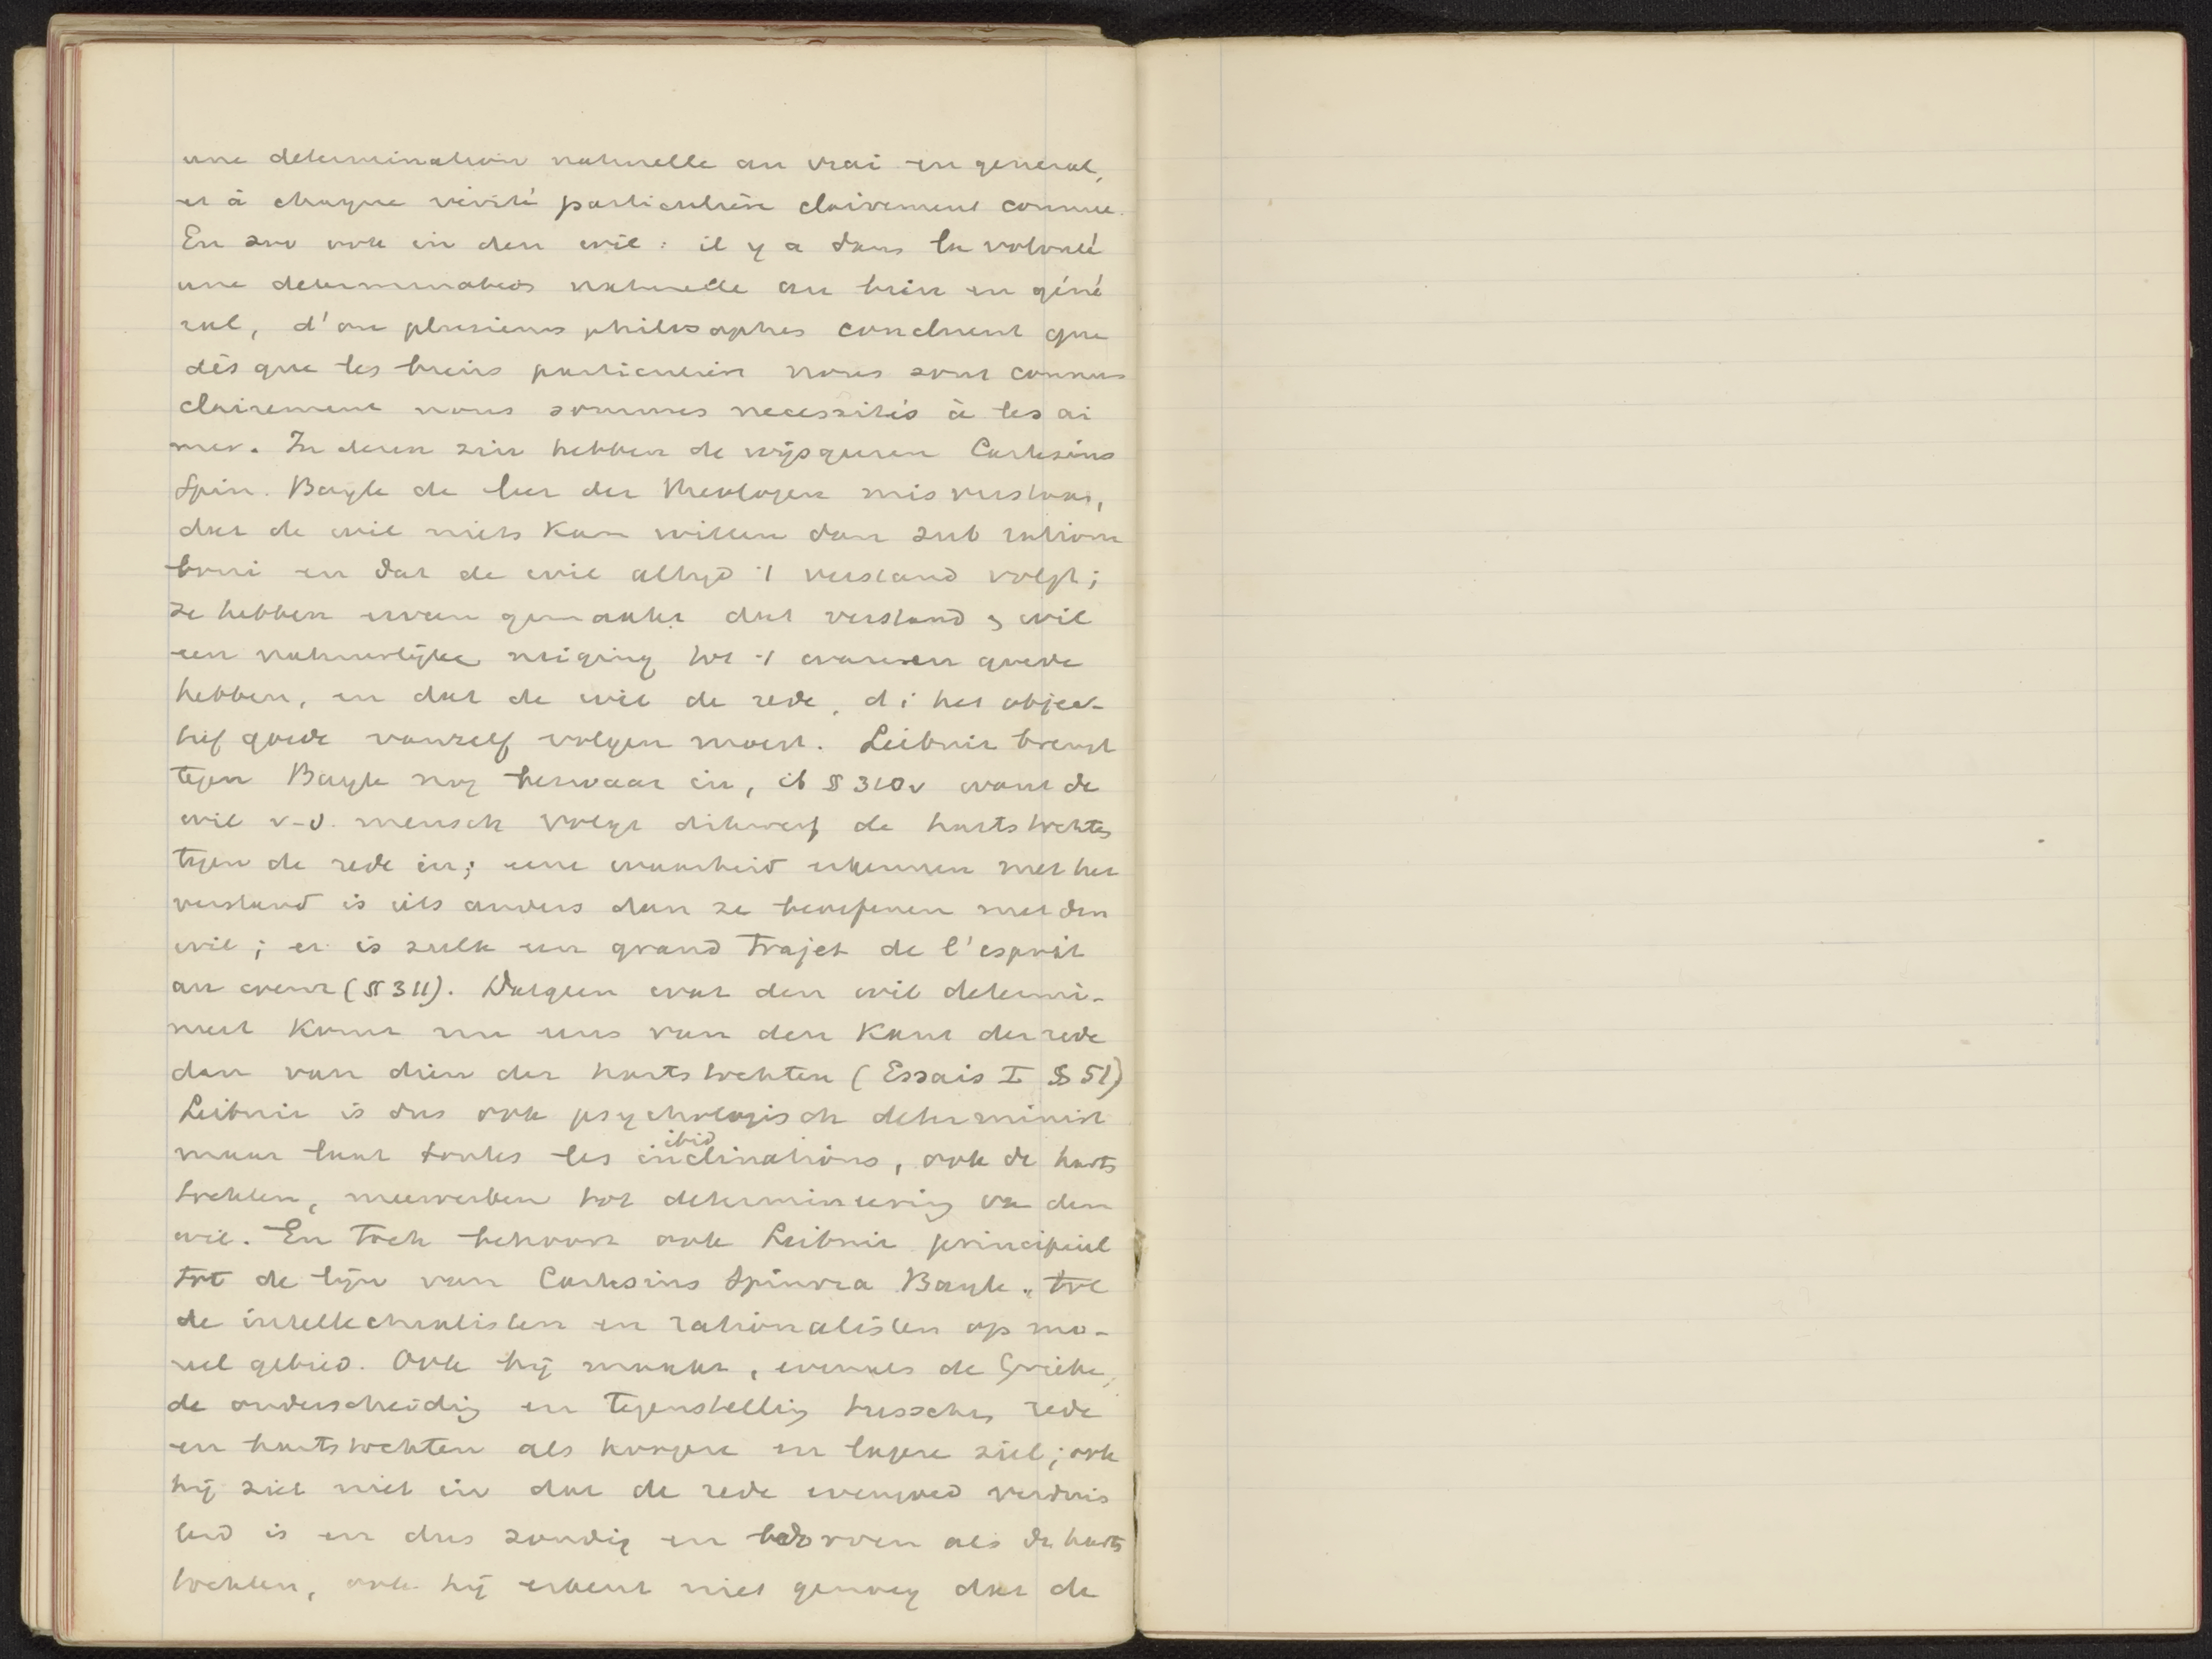 une determination naturelle au vrai en general,
et à chaque vérité particulière clairement connue.
En zoo ook in den wil: il y a dans la volonté
une determination naturelle au bien en géné
ral, d'ou plusieurs philosophes concluent que
dès que les biens particuliers nous sont connus
clairement nous sommes necessités à les ai
mer. In dezen zin hebben de wijsgeeren Cartesius
Spin. Bayle de leer der theologen misverstaan,
dat de wil niets kan willen dan sub ratione
boni en dat de wil altijd 't verstand volgt;
ze hebben ervan gemaakt dat verstand & wil
een natuurlijke neiging tot 't ware en goede
hebben, en dat de wil de rede, d i het objec-
tief goede vanzelf volgen moest. Leibniz brengt
tegen Bayle nog bezwaar in, ib § 310v want de
wil v-d. mensch volgt dikwerf de hartstochten
tegen de rede in; eene waarheid erkennen met het
verstand is iets anders dan ze beoefenen met den
wil; er is zulk een grand trajet de l'esprit
au coeur (§ 311). Datgeen wat den wil determi-
neert komt nu eens van den kant der rede
dan van dien der hartstochten (Essais I § 51)
Leibniz is dus ook psychologisch determinist
maar laat toutes les inclinations ibid, ook de harts
tochten, meewerken tot determineering van den
wil. En toch behoort ook Leibniz principieel
tot de lijn van Cartesius Spinoza Bayle, tot
de intellectualisten en rationalisten op mo-
reel gebied. Ook hij maakt, evenals de Grieken,
de onderscheiding en tegenstelling tusschen rede
en hartstochten als hoogere en lagere ziel; ook
hij ziet niet in dat de rede evengoed verduis
terd is en dus zondig en bedorven als de harts
tochten, ook hij erkent niet genoeg dat de